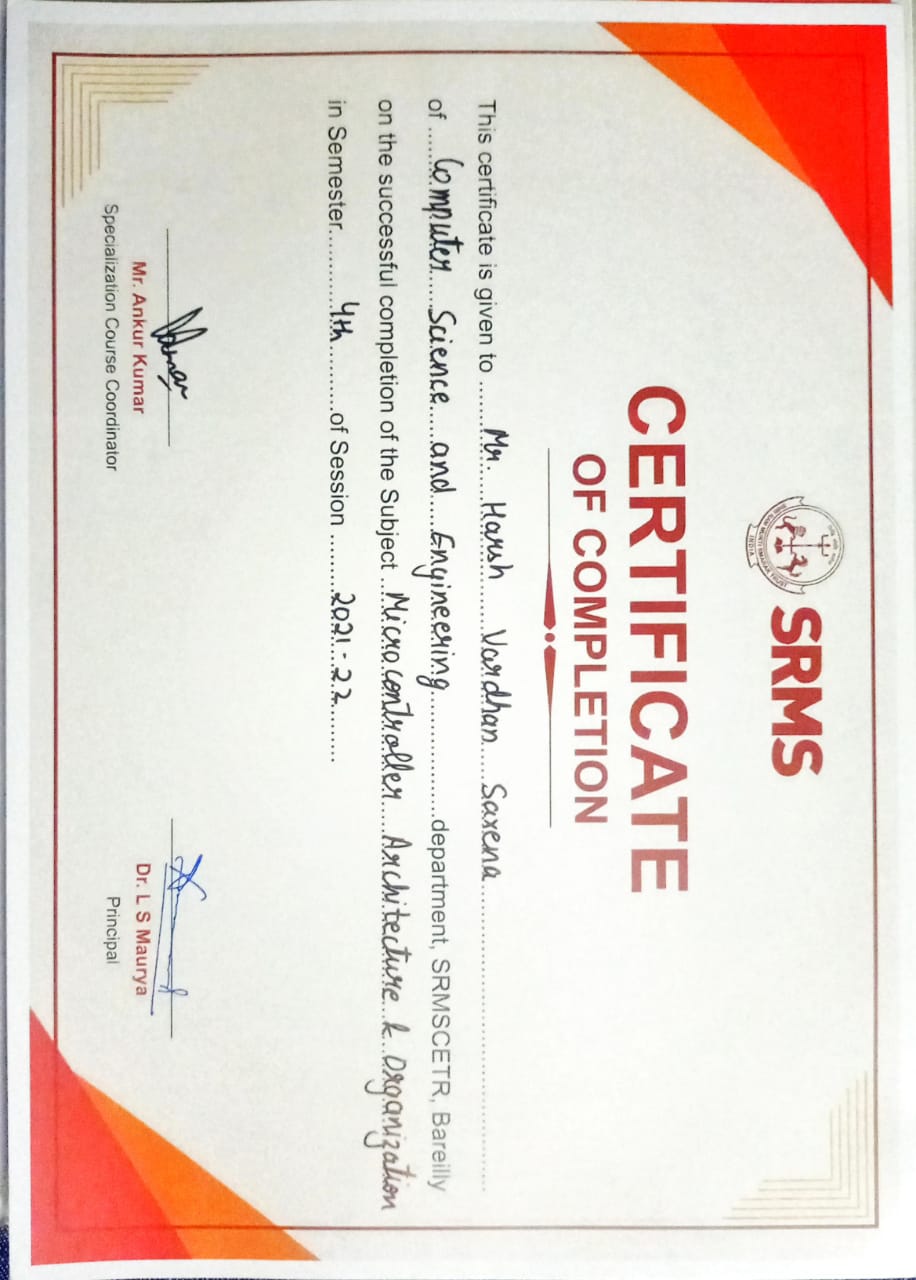 SHRI RAM MURTI SMARAK TRUST
INDIA
SRMS
CERTIFICATE
OF COMPLETION
This certificate is given to Mr. Harsh Vardhan Saxena
of Computer Science and Engineering department, SRMSCETR, Bareilly
on the successful completion of the Subject Microcontroller Architecture & Organization
in Semester 4th of Session 2021-22
Mr. Ankur Kumar
Specialization Course Coordinator
Dr. L S Maurya
Principal